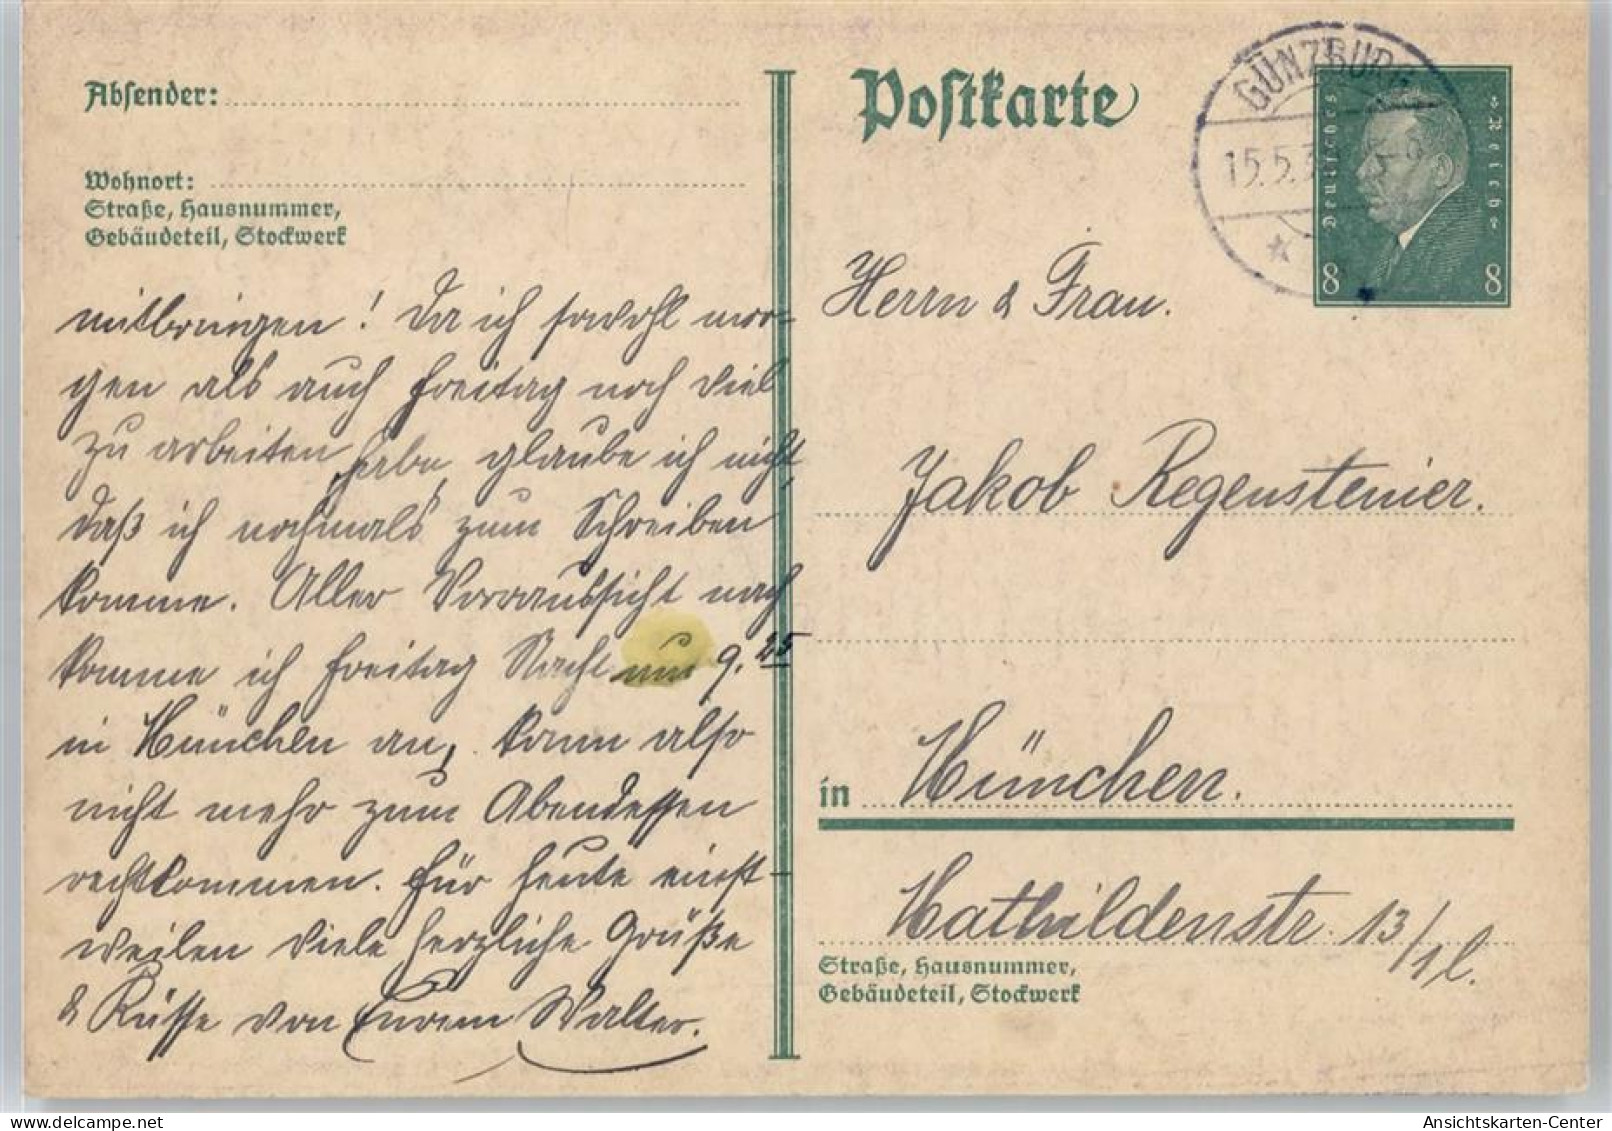 Absender:
Wohnort:
Straße, Hausnummer,
Gebäudeteil, Stockwerk
mitbringen! Da ich sowohl mor-
gen als auch Freitag noch viel
zu arbeiten habe, glaube ich nicht,
daß ich nochmals zum Schreiben
komme. Aller Vorraussicht nach
komme ich Freitag Nacht um 9.25
in München an, kann also
nicht mehr zum Abendessen
rechtkommen. Für heute einst-
weilen viele herzliche Grüße
& Küsse von Eurem Walter.
Postkarte
GÜNZBURG
15.5.3
Deutsches
Reich
8 8
Herrn & Frau.
Jakob Regensteiner.
in München.
Mathildenstr. 13/1l.
Straße, Hausnummer,
Gebäudeteil, Stockwerk
Ansichtskarten-Center